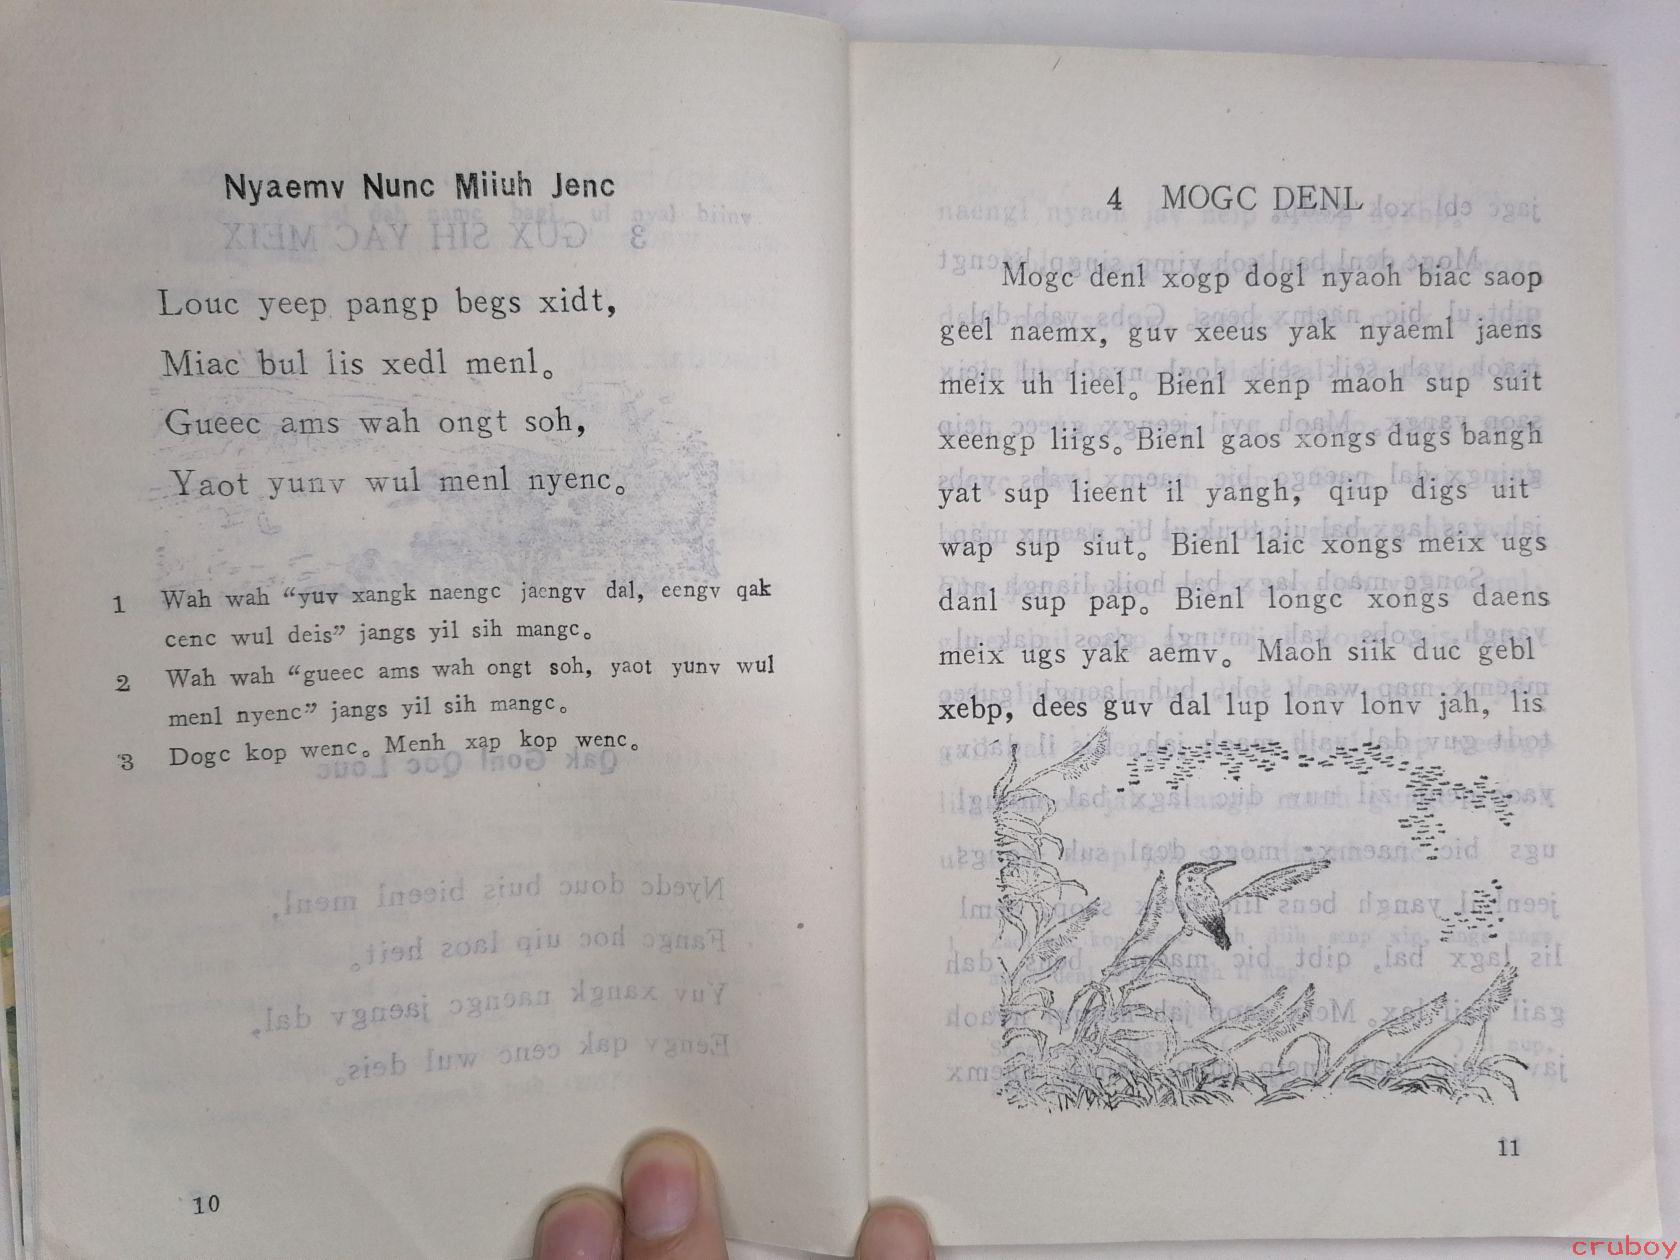 Nyaemv Nunc Miiuh Jenc
Louc yeep pangp begs xidt,
Miac bul lis xedl menl。
Gueec ams wah ongt soh,
Yaot yunv wul menl nyenc。
1 Wah wah “yuv xangk naengc jaengv dal, eengv qak
cenc wul deis” jangs yil sih mangc。
2 Wah wah “gueec ams wah ongt soh, yaot yunv wul
menl nyenc” jangs yil sih mangc。
3 Dogc kop wenc。 Menh xap kop wenc。
10
4 MOGC DENL
Mogc denl xogp dogl nyaoh biac saop
geel naemx, guv xeeus yak nyaeml jaens
meix uh lieel。 Bienl xenp maoh sup suit
xeengp liigs。 Bienl gaos xongs dugs bangh
yat sup lieent il yangh, qiup digs uit
wap sup siut。 Bienl laic xongs meix ugs
danl sup pap。 Bienl longc xongs daens
meix ugs yak aemv。 Maoh siik duc gebl
xebp, dees guv dal lup lonv lonv jah, lis
11
cruboy